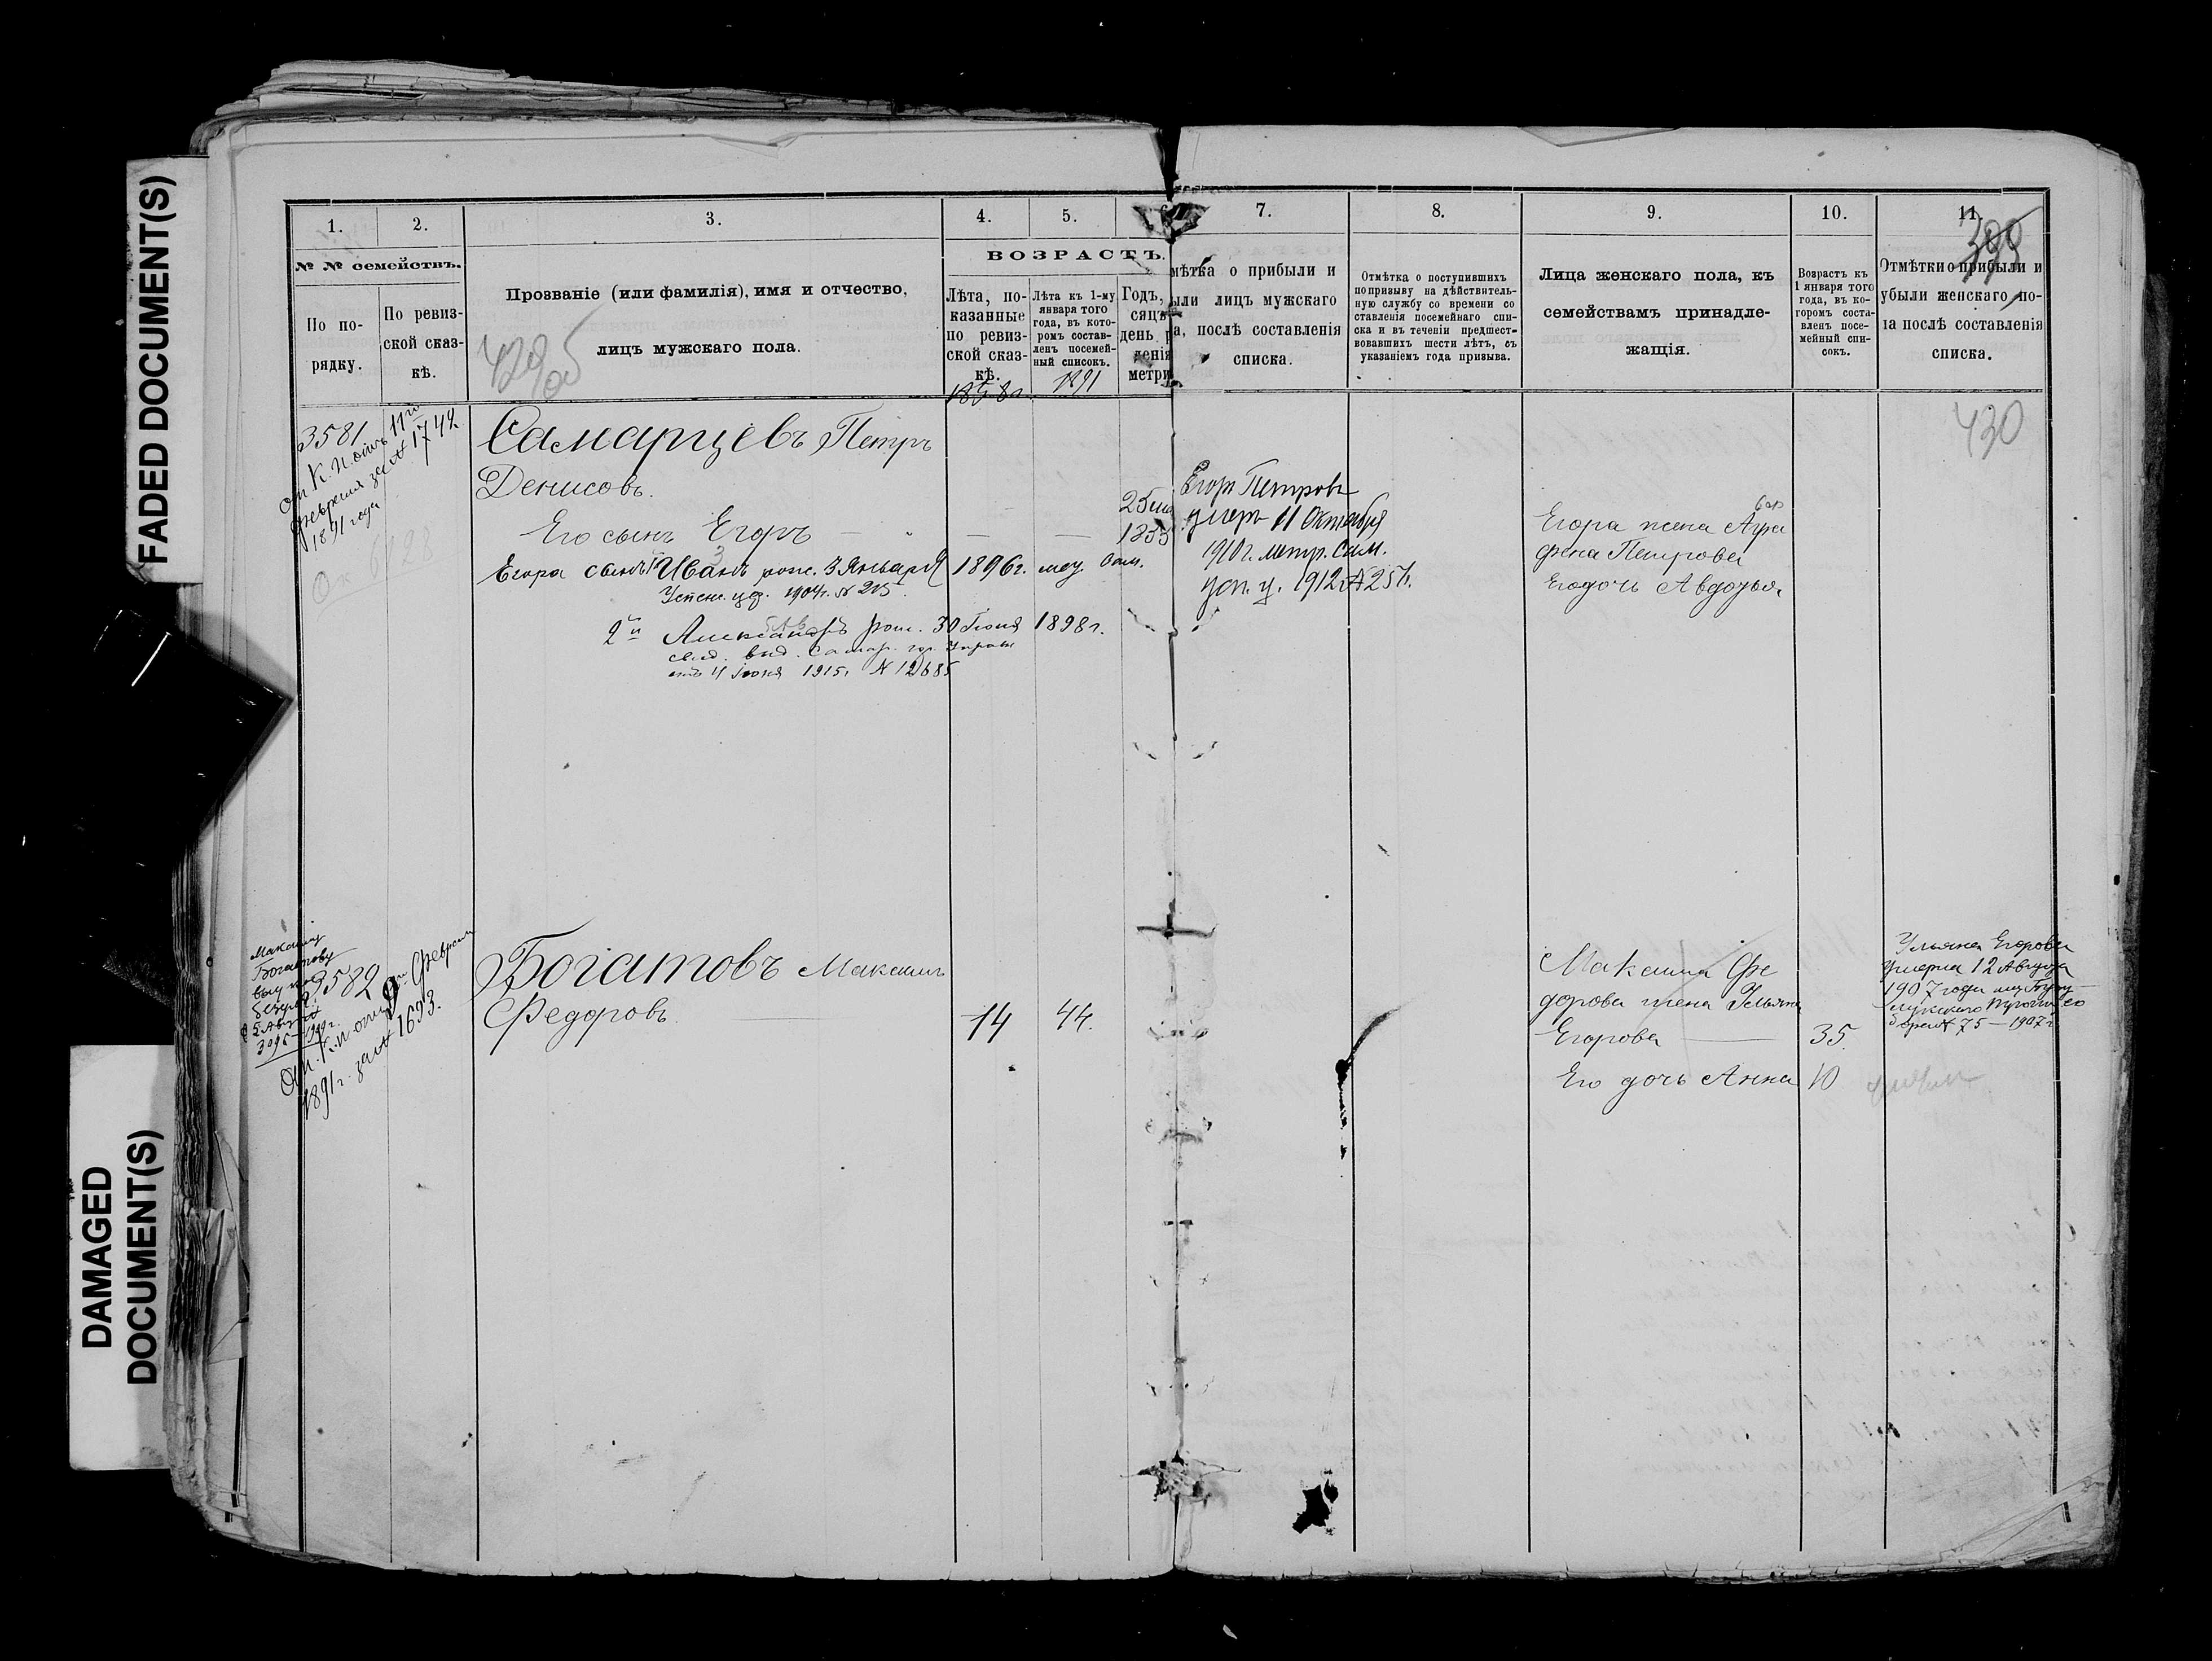 FADED DOCUMENT(S)
DAMAGED
DOCUMENT(S)
1.
2.
3.
4.
5.
7.
8.
9.
10.
11.
399
№ № семействъ.
По по-
рядку.
По ревиз-
ской сказ-
кѣ.
Прозваніе (или фамилія), имя и отчество,
лицъ мужскаго пола.
429 об
ВОЗРАСТЪ.
Лѣта, по-
казанные
по ревиз-
ской сказ-
кѣ.
1858 г.
Лѣта къ 1-му
января того
года, въ кото-
ромъ состав-
ленъ посемей-
ный списокъ.
1891
Годъ,
сяцъ
день р
денія
метри
мѣтка о прибыли и
ыли лицъ мужскаго
а, послѣ составленія
списка.
Отмѣтка о поступившихъ
по призыву на дѣйствитель-
ную службу со времени со
ставленія посемейнаго спи-
ска и въ теченіи предшест-
вовавшихъ шести лѣтъ, съ
указаніемъ года призыва.
Лица женскаго пола, къ
семействамъ принадле-
жащія.
Возрастъ къ
1 января того
года, въ ко-
торомъ соста-
вленъ посе-
мейный спи-
сокъ.
Отмѣтки о прибыли и
убыли женскаго по-
ла послѣ составленія
списка.
430
3581
от К. П. отъ 11го
февраля за № 1742
1891 года
Самарцевъ Петръ
Денисовъ.
Его сынъ Егоръ
Егора сынъ 1й Иванъ рож. 3 Января 1896 г.
1904 г. № 215
2й Александръ рож. 30 Іюня 1898 г.
свид. выд. Самар. гор.
отъ 4 Іюня 1915 г. № 12685
Егоръ Петровъ
умеръ 11 Октября
1910 г. метр. Сам.
1912 №
Егора жена Агра
фена Петрова
Его дочь Авдотья
Максиму
Богатову
3582
от К. П. отъ 9го Февраля
1891 г. за № 1693.
Богатовъ Максимъ
Федоровъ
14
44.
Максима Фе
дорова жена Ульяна
Егорова
35.
Его дочь Анна
10
Ульяна Егорова
умерла 12 Августа
1907 года
№ 75 — 1907 г.